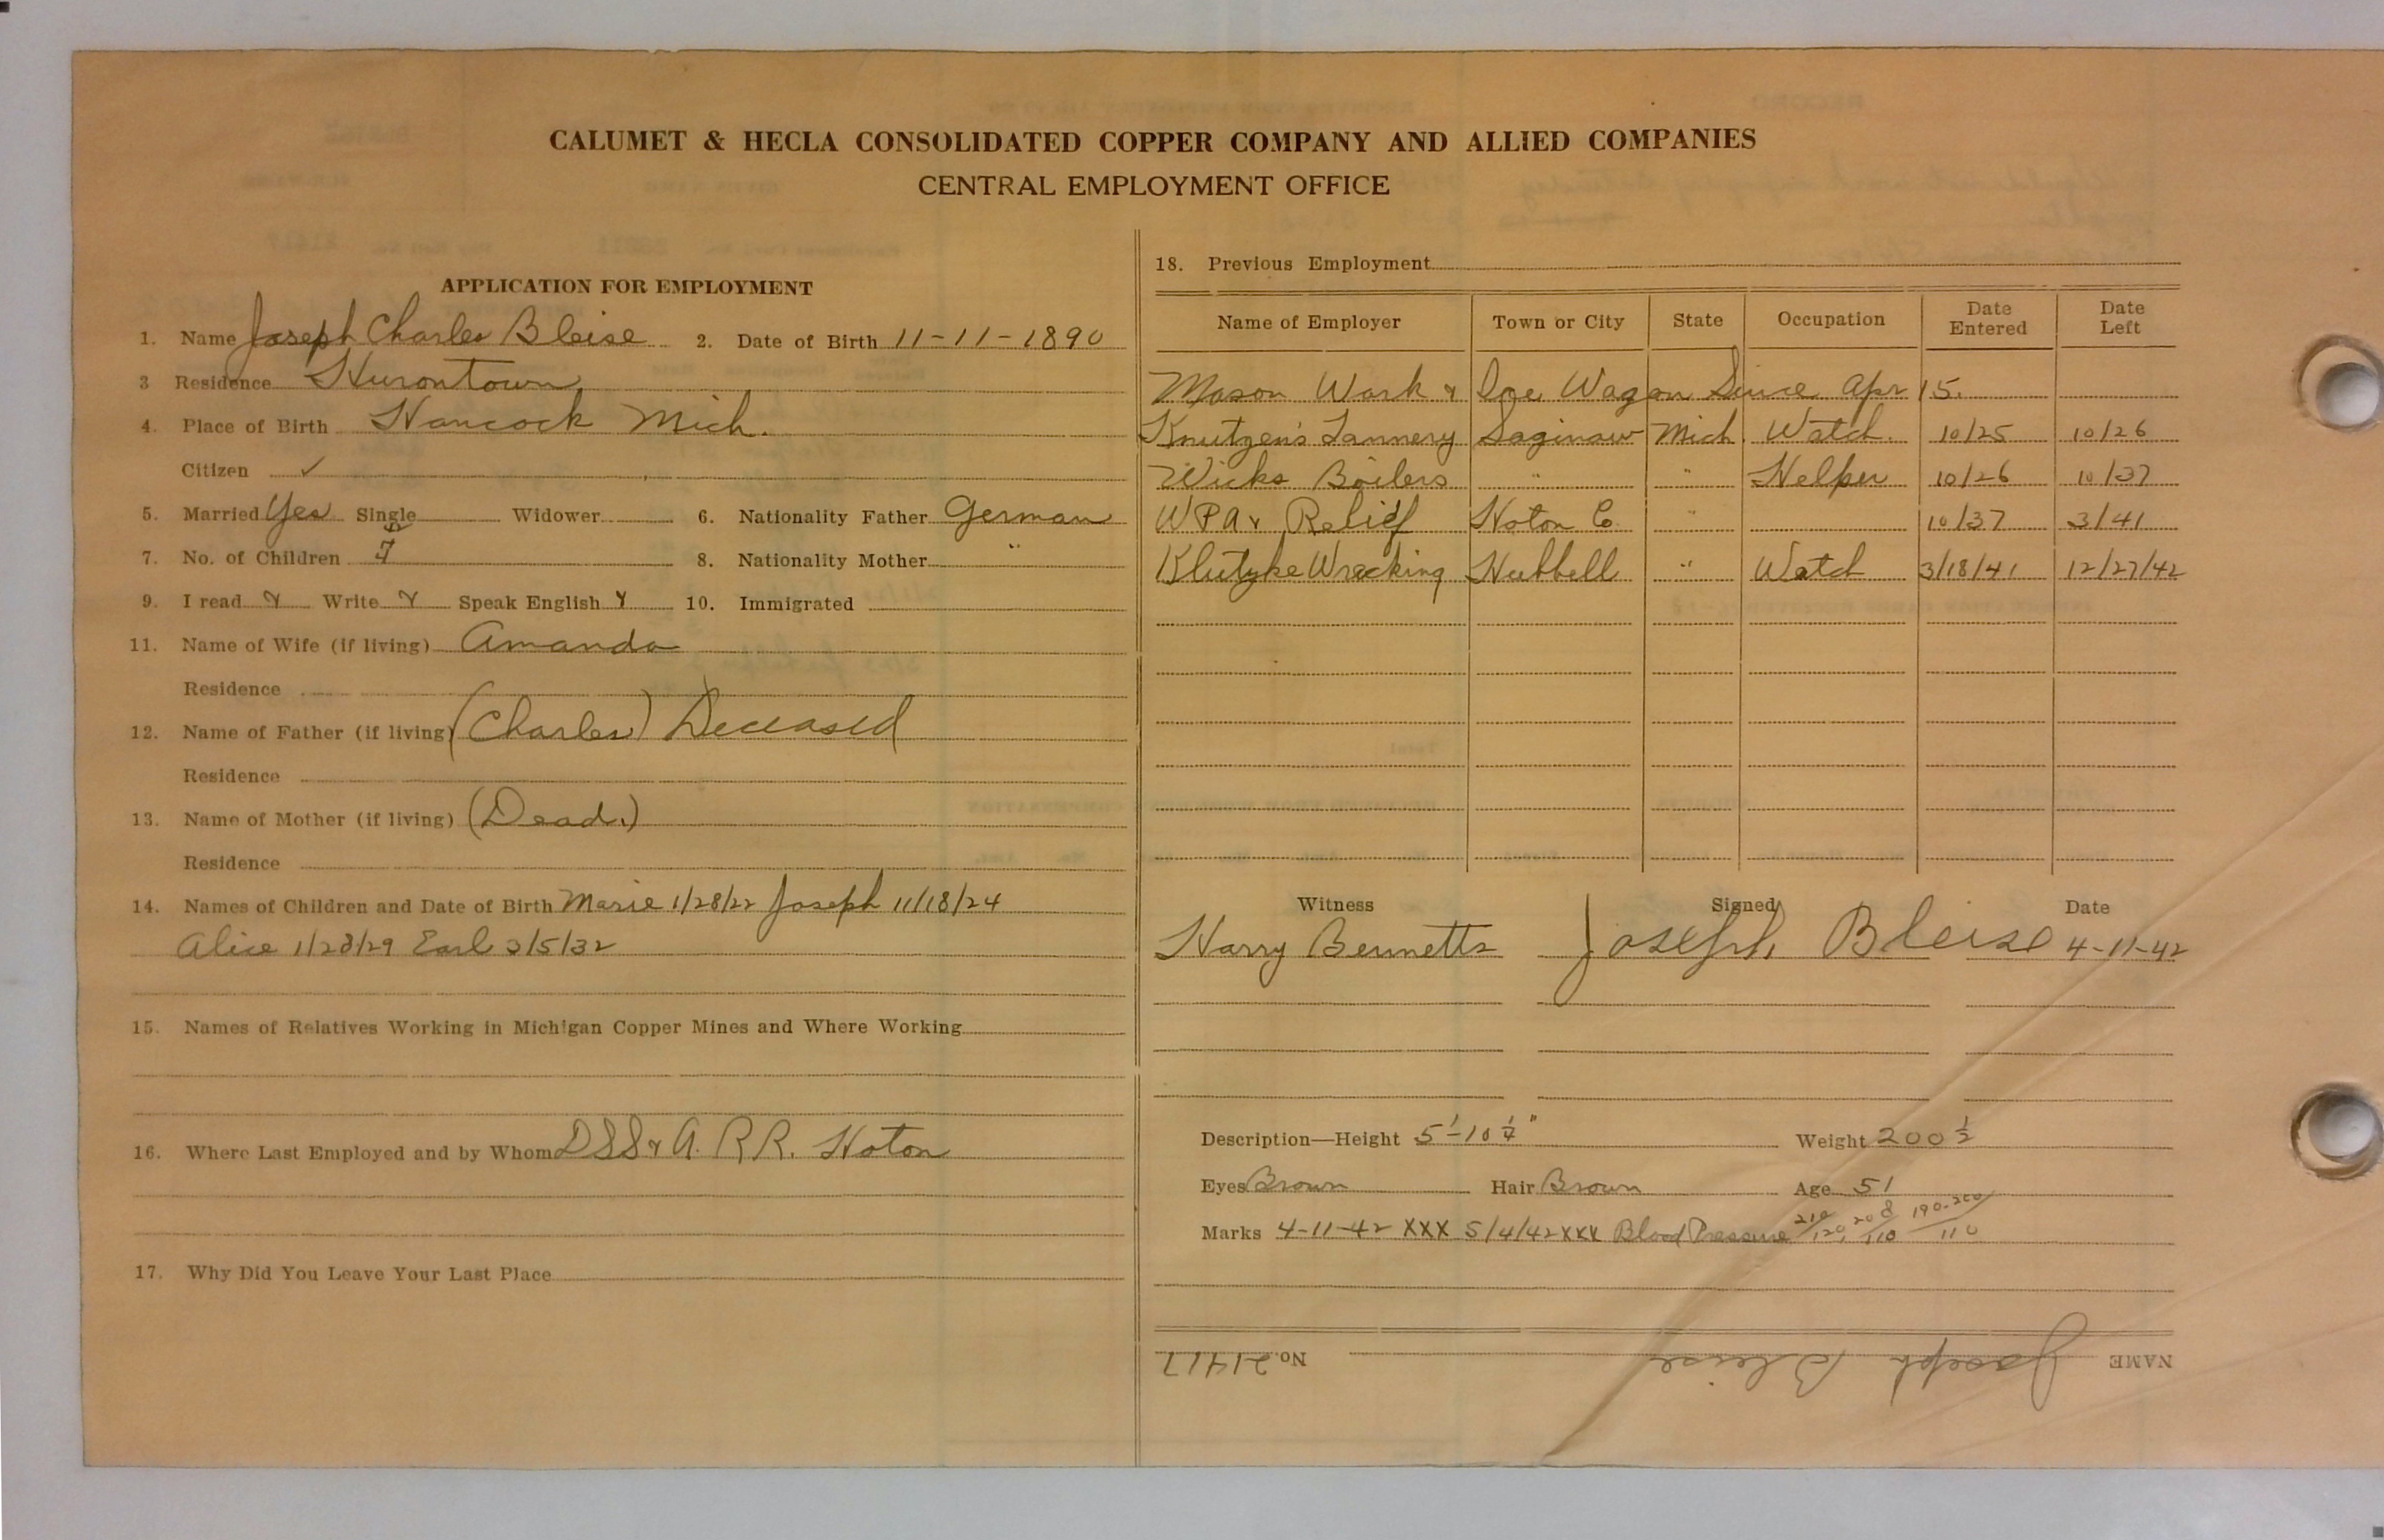 CALUMET & HECLA CONSOLIDATED COPPER COMPANY AND ALLIED COMPANIES
CENTRAL EMPLOYMENT OFFICE
APPLICATION FOR EMPLOYMENT
1. Name Joseph Charles Bleise 2. Date of Birth 11-11-1890
3 Residence Hurontown
4. Place of Birth Hancock Mich.
Citizen ✓
5. Married Yes Single Widower 6. Nationality Father German
7. No. of Children 7. 8. Nationality Mother "
9. I read Y Write Y Speak English Y 10. Immigrated
11. Name of Wife (if living) Amanda
Residence
12. Name of Father (if living) (Charles) Deceased
Residence
13. Name of Mother (if living) (Dead.)
Residence
14. Names of Children and Date of Birth Marie 1/28/22 Joseph 11/18/24
Alice 1/23/29 Earl 3/5/32
15. Names of Relatives Working in Michigan Copper Mines and Where Working
16. Where Last Employed and by Whom DSS & A. RR. Hoton
17. Why Did You Leave Your Last Place
18. Previous Employment
Name of Employer Town or City State Occupation Date Entered Date Left
Mason Work & Ice Wagon Since Apr 15.
Knutzen's Tannery Saginaw Mich. Watch. 10/25 10/26
Wicks Boilers " " Helper 10/26 10/37
WPA & Relief Hoton Co " 10/37 3/41
Klutzke Wrecking Hubbell " Watch 3/18/41 12/27/42
Witness Signed Date
Harry Bennetts Joseph Bleise 4-11-42
Description—Height 5'-10 1/4" Weight 200 1/2
Eyes Brown Hair Brown Age 51
Marks 4-11-42 XXX 5/4/42 XXX Blood Pressure 210/120, 208/110 190-200/110
NAME Joseph Bleise No. 21417